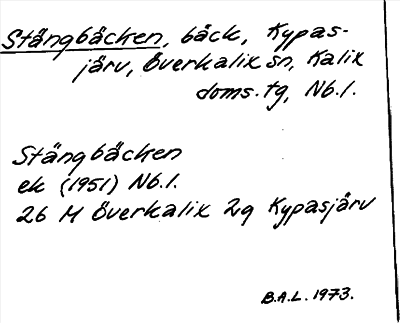 Stängbäcken, bäck, Kypas-
järv, Överkalix sn, Kalix
doms. tg, Nb.l.
Stängbäcken
ek (1951) Nb.l.
26 M Överkalix 2g Kypasjärv
B.A.L. 1973.